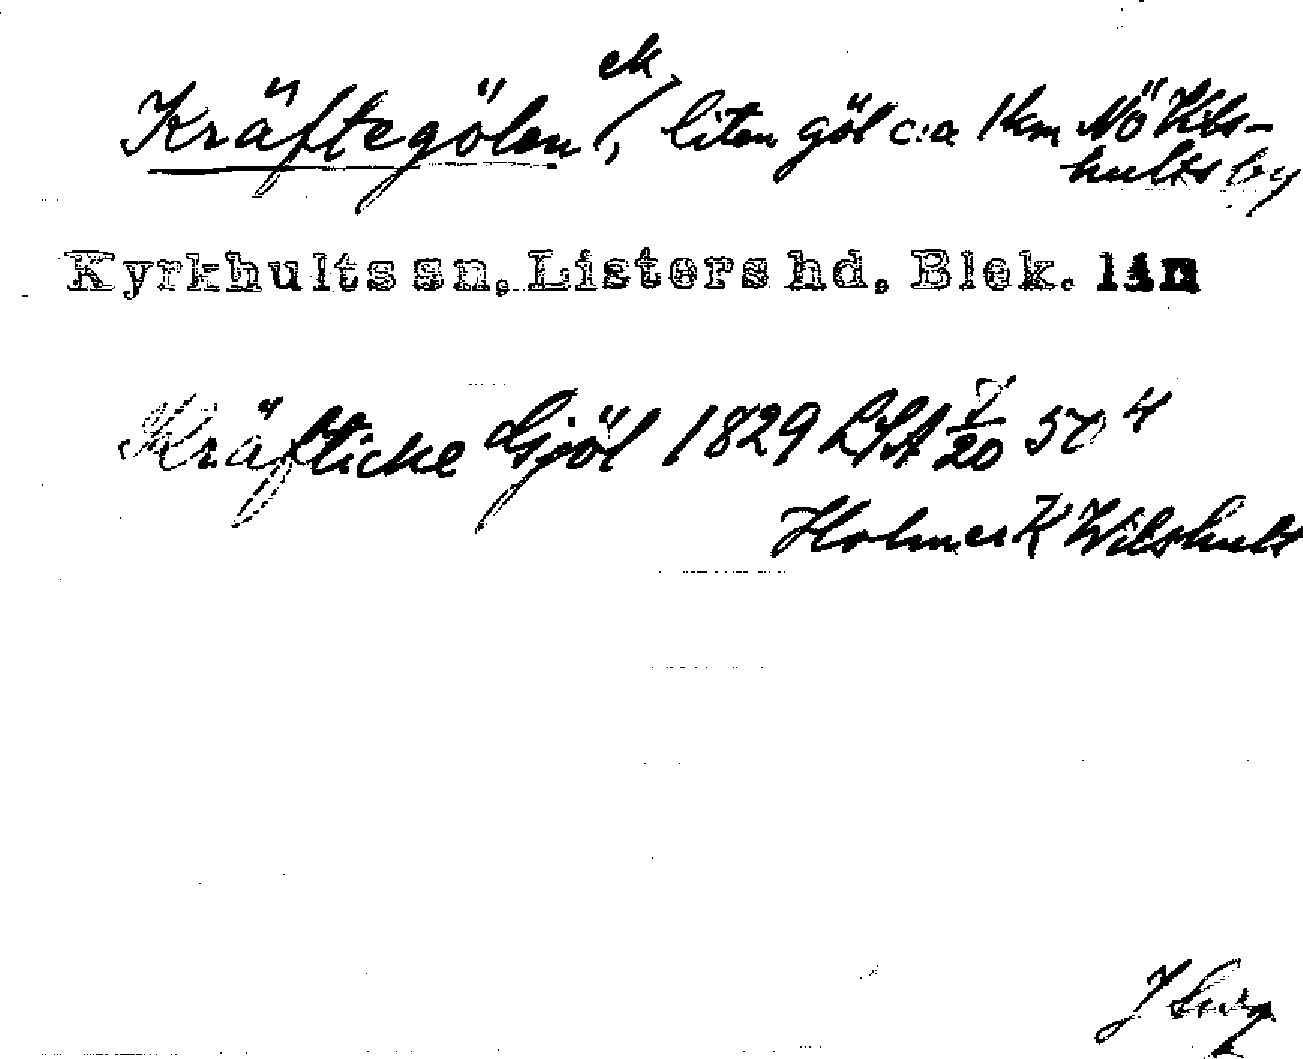 Kräftegölen ek, liten göl c:a 1 km NÖ Vils-
hults by
Kyrkhults sn, Listers hd, Blek. län
Kräfticke Gjöl 1829 LSA 7/20 50 4
Holmer K Wilshult